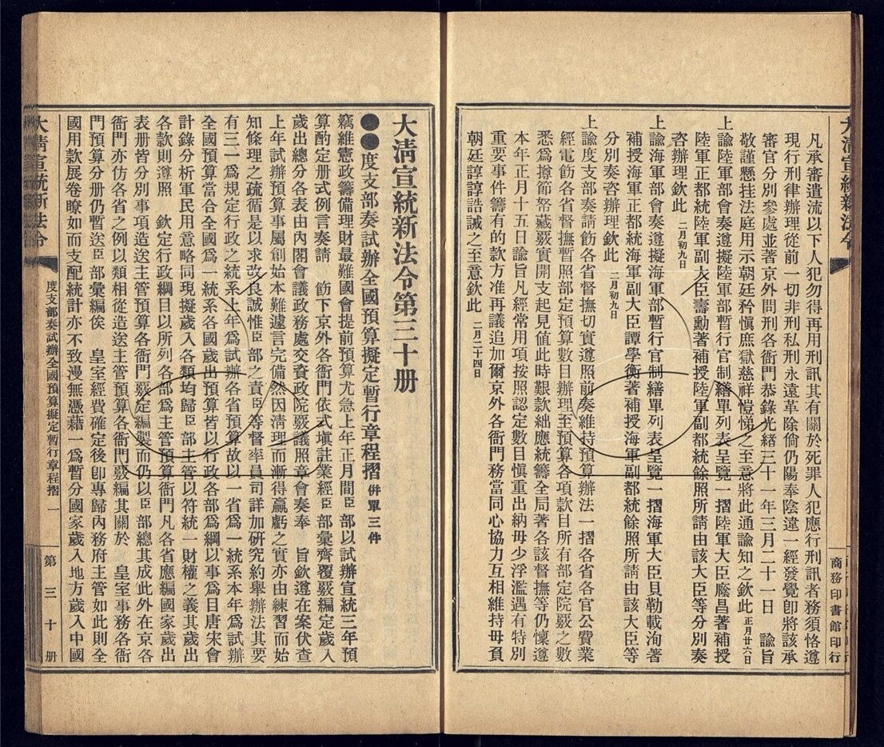 大清宣統新法令
商務印書館印行
凡承審遣流以下人犯勿得再用刑訊其有關於死罪人犯應行刑訊者務須恪遵
現行刑律辦理從前一切非刑私刑永遠革除倘仍陽奉陰違一經發覺卽將該承
審官分別參處並著京外問刑各衙門恭錄光緒三十一年三月二十一日　諭旨
敬謹懸挂法庭用示朝廷矜愼庶獄慈祥愷悌之至意將此通諭知之欽此正月廿六日
上諭陸軍部會奏遵擬陸軍部暫行官制繕單列表呈覽一摺陸軍大臣廕昌著補授
陸軍正都統陸軍副大臣壽勳著補授陸軍副都統餘照所請由該大臣等分別奏
咨辦理欽此　二月初九日
上諭海軍部會奏遵擬海軍部暫行官制繕單列表呈覽一摺海軍大臣貝勒載洵著
補授海軍正都統海軍副大臣譚學衡著補授海軍副都統餘照所請由該大臣等
分別奏咨辦理欽此　二月初九日
上諭度支部奏請飭各省督撫切實遵照前奏維持預算辦法一摺各省各官公費業
經電飭各省督撫暫照部定預算數目辦理至預算各項款目所有部定院覈之數
悉爲撙節帑藏覈實開支起見値此時艱款絀應統籌全局著各該督撫等仍懍遵
本年正月十五日諭旨凡經常用項按照認定數目愼重出納毋少浮濫遇有特別
重要事件籌有的款方准再議追加爾京外各衙門務當同心協力互相維持毋負
朝廷諄諄誥誡之至意欽此　二月二十四日
大清宣統新法令第三十册
●●度支部奏試辦全國預算擬定暫行章程摺　倂單三件
竊維憲政籌備理財最難國會提前預算尤急上年正月間臣部以試辦宣統三年預
算酌定册式例言奏請　飭下京外各衙門依式塡註業經臣部彙齊覆覈編定歲入
歲出總分各表由內閣會議政務處交資政院覈議照章會奏奉　旨欽遵在案伏查
上年試辦預算事屬創始本難遽言完備然因清理而漸得贏虧之實亦由練習而始
知條理之疏循是以求改良誠惟臣部之責臣等督率員司詳加硏究約舉辦法其要
有三一爲規定行政之統系上年爲試辦各省預算故以一省爲一統系本年爲試辦
全國預算當合全國爲一統系各國歲出預算皆以行政各部爲綱以事爲目唐宋會
計錄分析軍民用意略同現擬歲入各類均歸臣部主管以符統一財權之義其歲出
各款則遵照　欽定行政綱目以所列各部爲主管預算衙門凡各省應編國家歲出
表册皆分別事項造送主管預算各衙門覈定編製而仍以臣部總其成此外在京各
衙門亦仿各省之例以類相從造送主管預算各衙門覈編其關於　皇室事務各衙
門預算分册仍暫送臣部彙編俟　皇室經費確定後卽專歸內務府主管如此則全
國用款展卷瞭如而支配統計亦不致漫無憑藉一爲暫分國家歲入地方歲入中國
大清宣統新法令
度支部奏試辦全國預算擬定暫行章程摺　一
第三十册